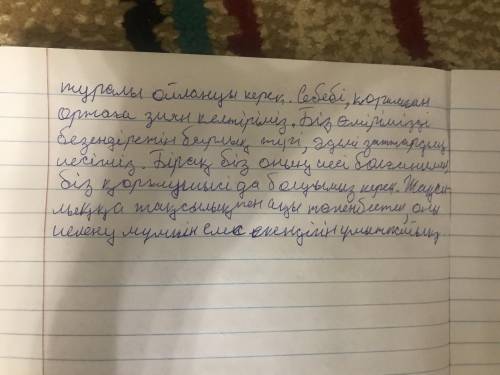 туралы ойлануы керек. Себебі, қоршаған
ортаға зиян келтіріміз. Біз өмірімізді
безендіретін барлық түгі, әдемі заттардың
иесіміз. Бірақ біз оның иесі болғанымен,
біз қорғаушысі да болуымыз керек. Жақсы-
лыққа жақсылықпен ащы төленбестен, оны
иелену мүмкін емес екендігін ұмытпайық.